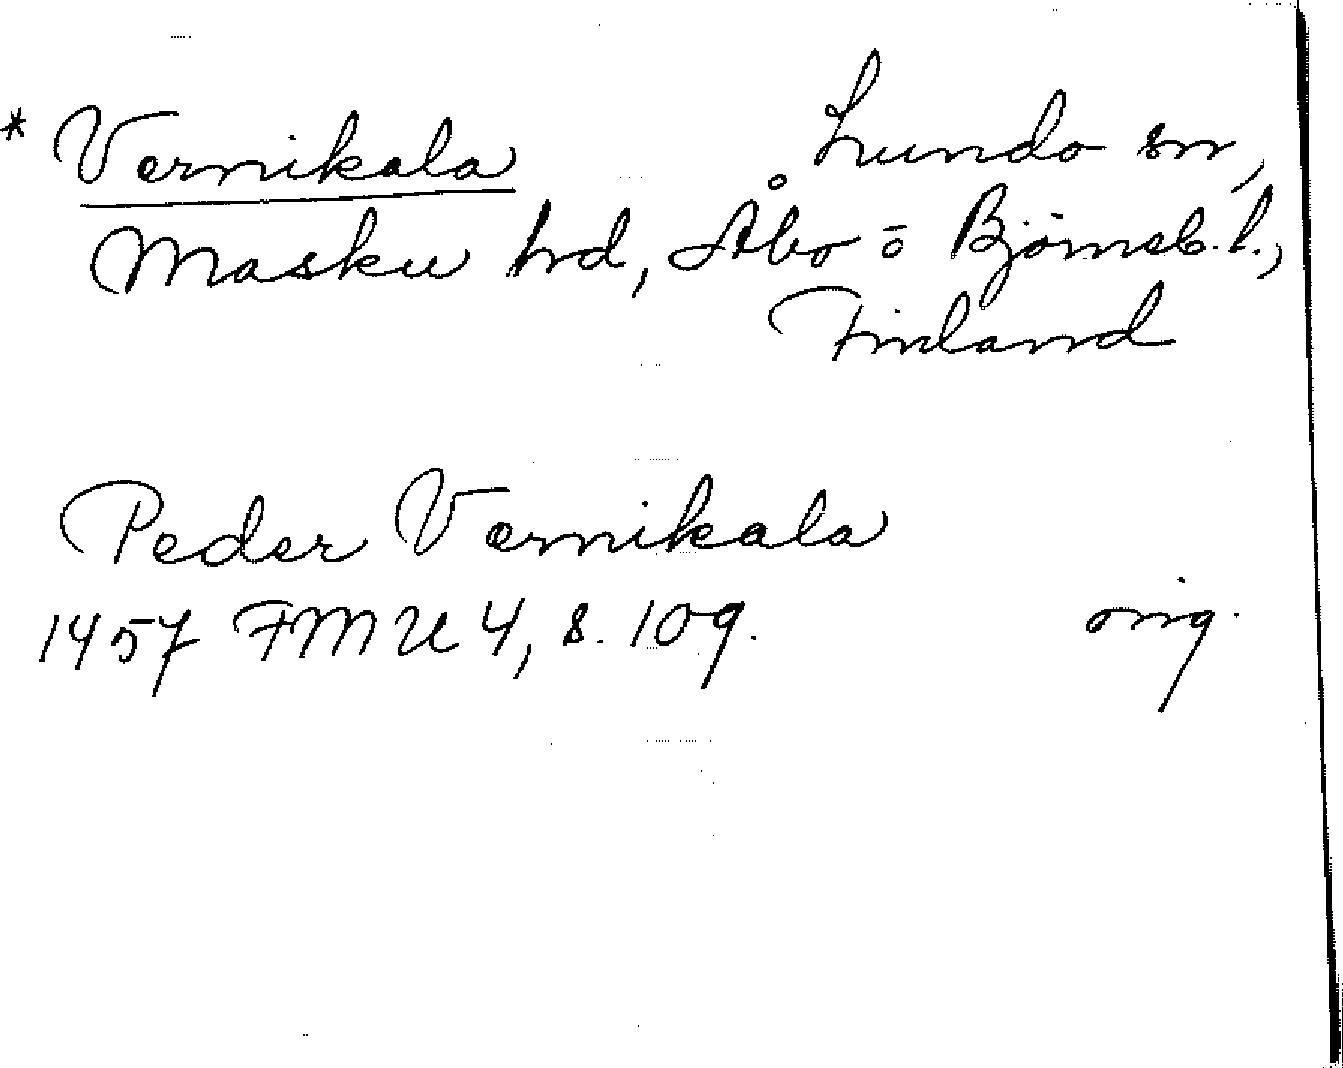 * Vernikala Lundo sn,
Masku hd, Åbo o Björneb. l.,
Finland
Peder Vernikala
1457 FMU 4, s. 109. orig.